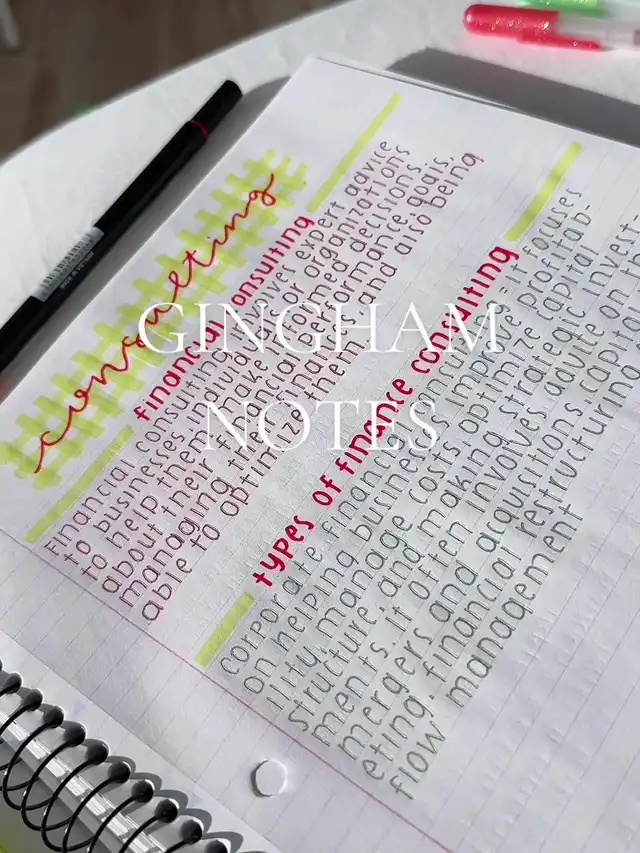 consulting
financial consulting
Financial consulting involves expert advice
to businesses individuals or organizations
to help them make informed decisions
about their financial performance, goals,
managing their finances and also being
able to optimize them
types of finance consulting
corporate finance consulting: it focuses
on helping businesses improve profitab-
ility, manage costs, optimize capital
structure and making strategic invest
ments. it often involves advice on
mergers and acquisitions, capital
eting. financial restructuring
flow management
GINGHAM
NOTES